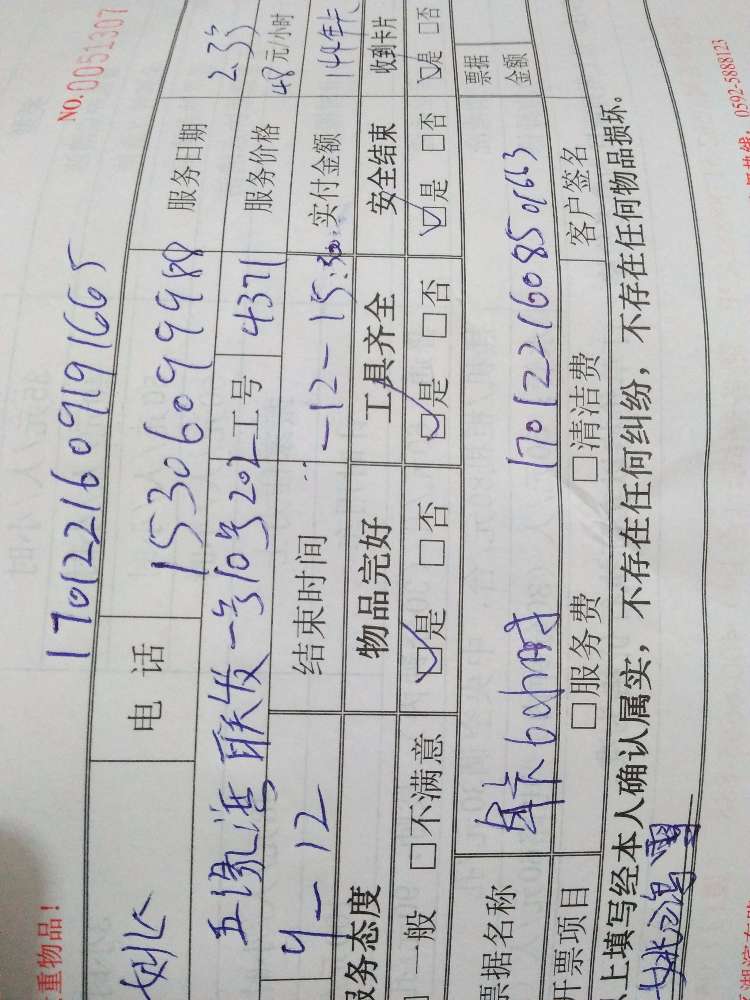 重物品！
NO.0051307
1701221609191665
电 话 15306099988 服务日期 2.33
五缘湾联发一号10号202 工号 4371 服务价格 48元/小时
9-12 结束时间 -12-15:30 实付金额 144年卡
服务态度 物品完好 工具齐全 安全结束 收到卡片
一般 □不满意 □是 □否 □是 □否 □是 □否 □是 □否
票据名称 年卡60小时 1701221608501663 票据金额
开票项目 □服务费 □清洁费 客户签名
上填写经本人确认属实，不存在任何纠纷，不存在任何物品损坏。
0592-5888123